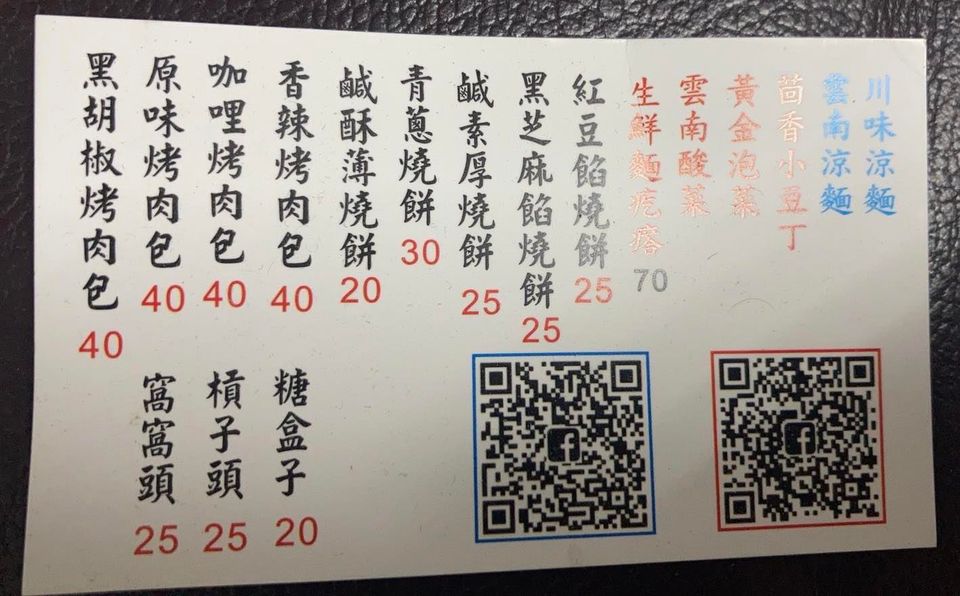 川味涼麵
雲南涼麵
茴香小豆丁
黃金泡菜
雲南酸菜
生鮮麵疙瘩
70
紅豆餡燒餅
25
黑芝麻餡燒餅
25
鹹素厚燒餅
25
青蔥燒餅
30
鹹酥薄燒餅
20
香辣烤肉包
40
咖哩烤肉包
40
原味烤肉包
40
黑胡椒烤肉包
40
糖盒子
20
槓子頭
25
窩窩頭
25